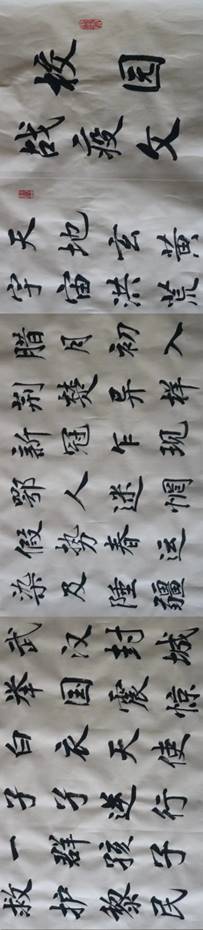 校园
战疫文
天地玄黄
宇宙洪荒
腊月初入
荆楚异样
新冠乍现
鄂人迷惘
假势春运
染及陲疆
武汉封城
举国震惊
白衣天使
行
一群孩子
救护黎民